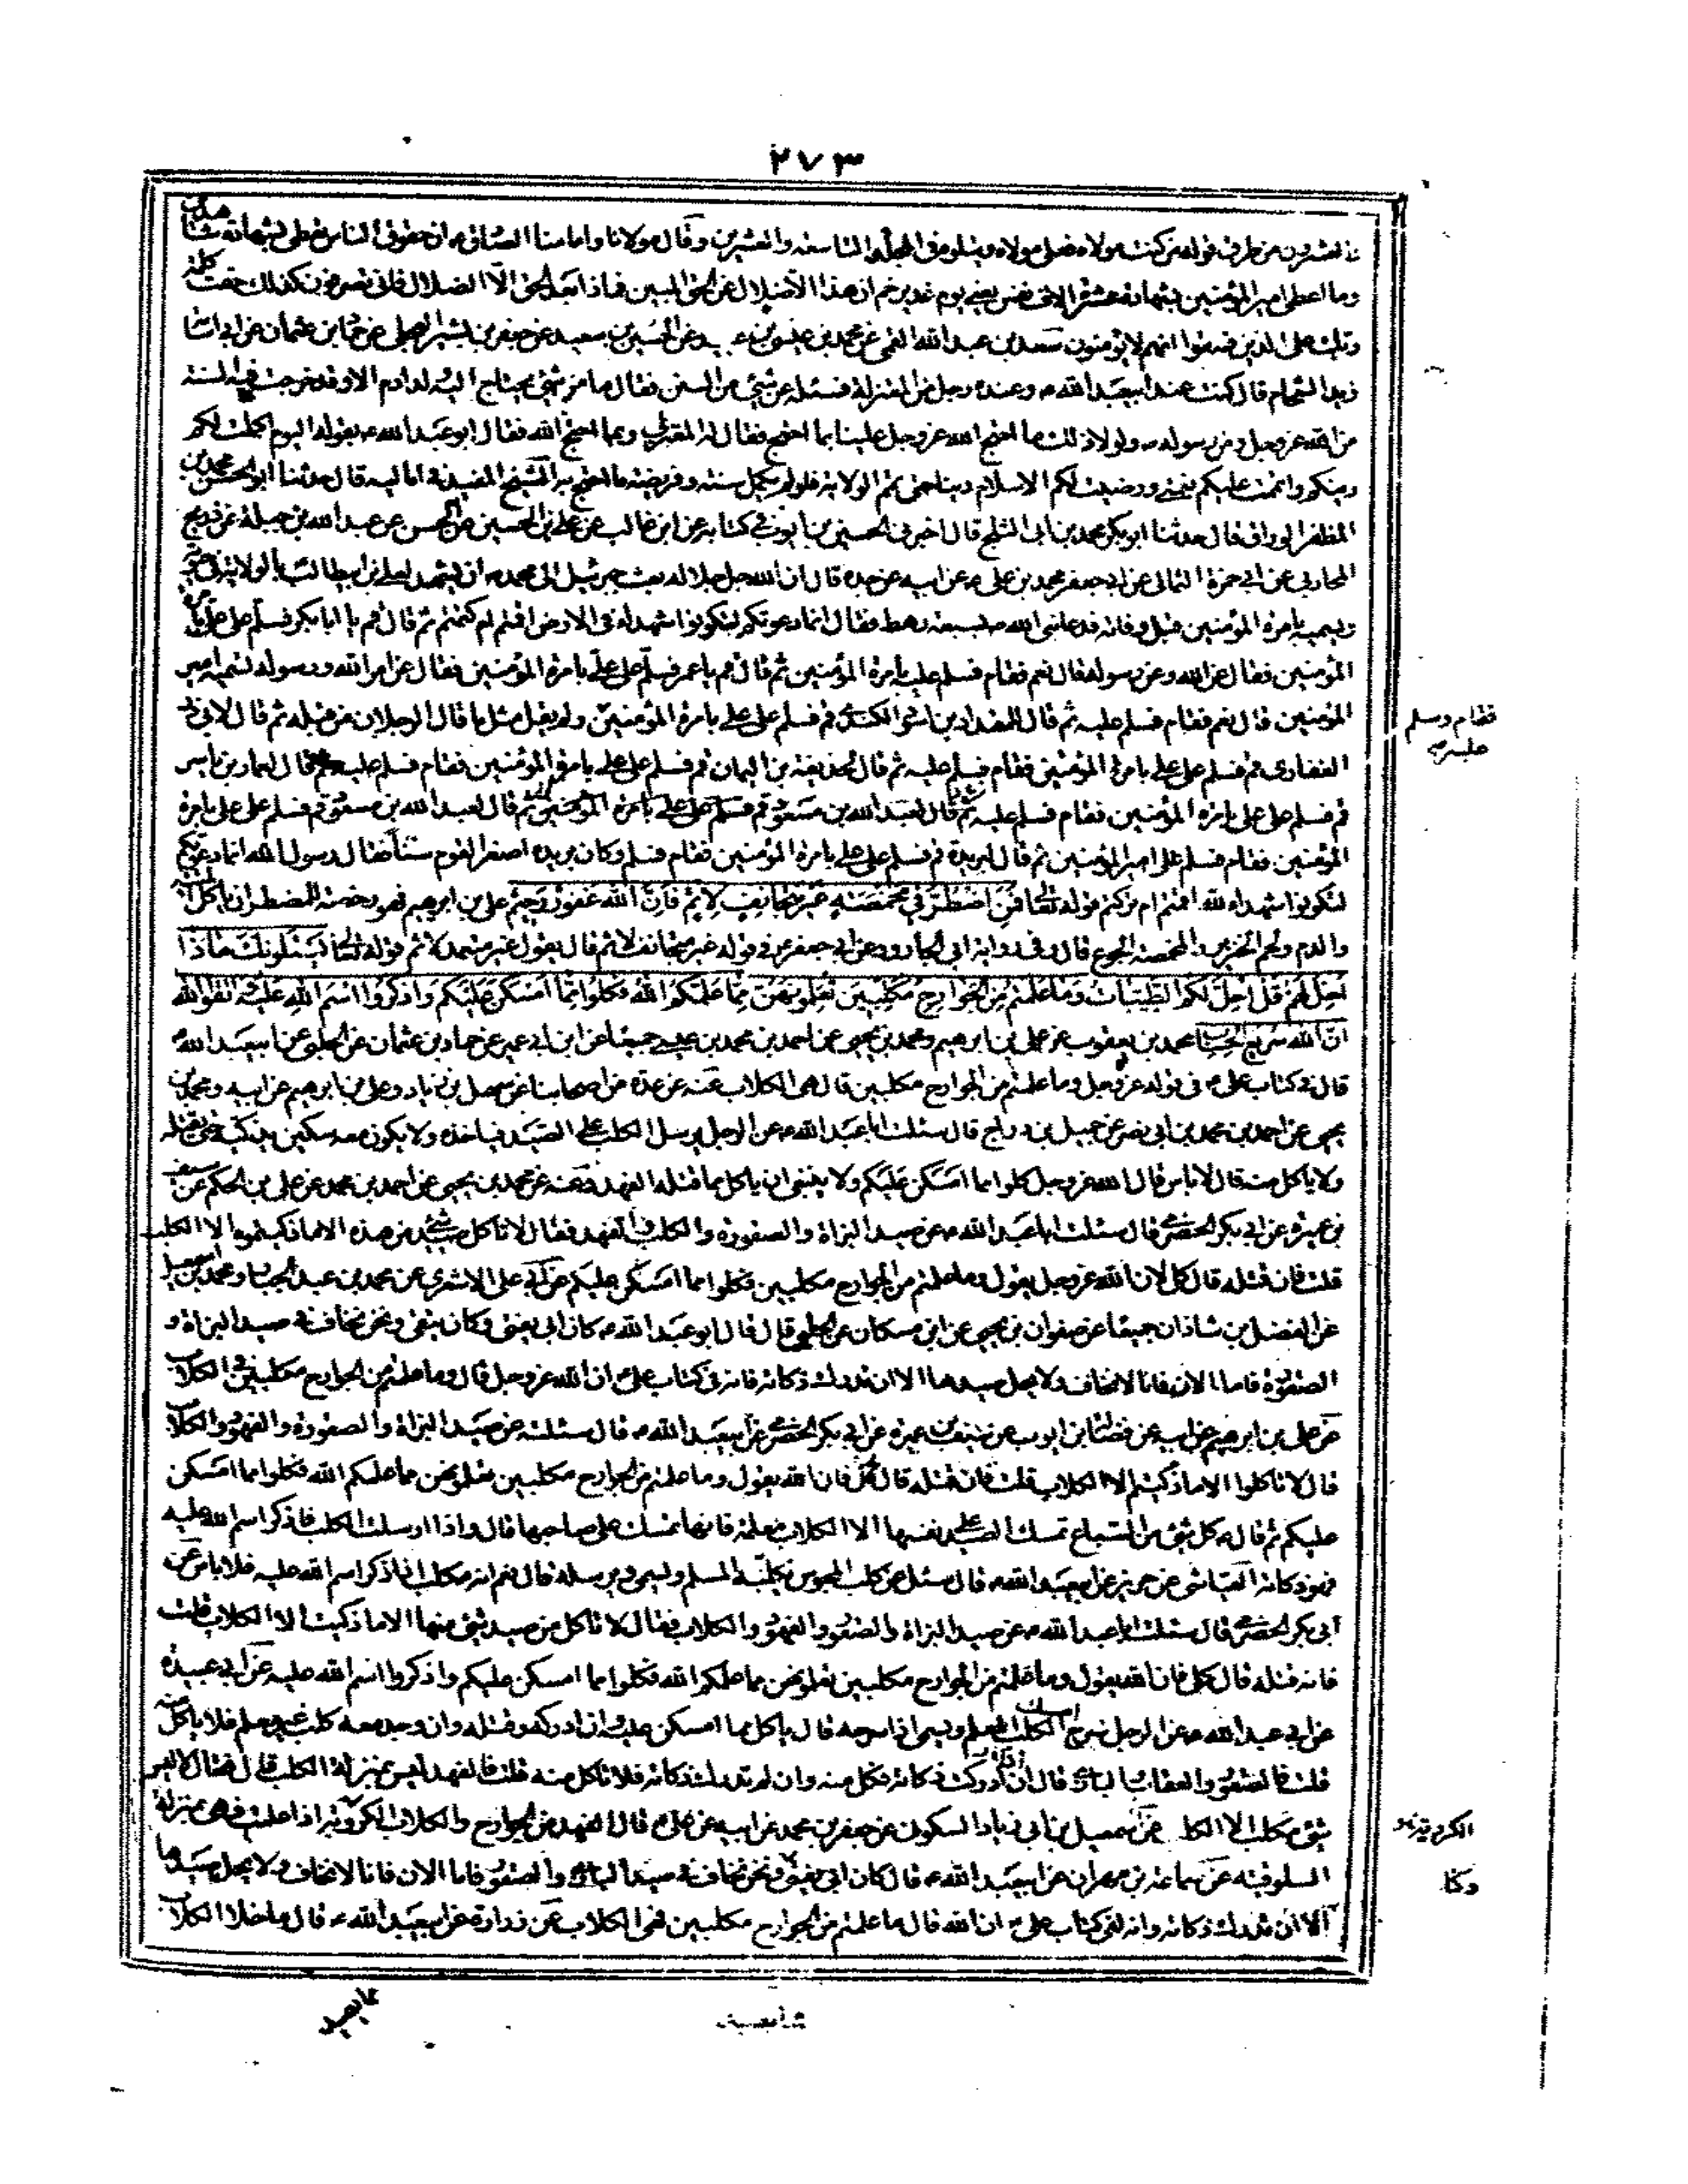 ٢٧٣
والعشرين من طرق قوله من كنت مولاه فعلي مولاه ويتلوه في المجلد التاسعة والعشرين وقال مولانا وامامنا الصادق ان حقوق الناس تعطى بشهادة شاهدين
وما اعطى امير المؤمنين بشهادة عشرة الاف نفس يعني يوم غدير خم ان هذا الا ضلال عن الحق المبين فماذا بعد الحق الا الضلال فانى تصرفون كذلك حقت كلمة
ربك على الذين فسقوا انهم لا يؤمنون سعد بن عبد الله القمي عن محمد بن عيسى بن عبيد عن الحسين بن سعيد عن جعفر بن بشير البجلي عن حماد بن عثمان عن ابي اسامة
زيد الشحام قال كنت عند ابيعبد الله ع وعنده رجل من المغيرية فسئله عن شئ من السنن فقال ما من شئ يحتاج اليه ولد ادم الا وقد خرجت فيه السنة
من الله عز وجل ومن رسوله ولولا ذلك ما احتج الله عز وجل علينا بما احتج فقال له المغيري وبما احتج الله فقال ابو عبد الله ع بقوله اليوم اكملت لكم
دينكم واتممت عليكم نعمتي ورضيت لكم الاسلام دينا حتى تمم الولاية فلو لم يكمل سنته وفريضته ما احتج به الشيخ المفيد في اماليه قال حدثنا ابو الحسن محمد بن
المظفر الوراق قال حدثنا ابو بكر محمد بن ابي الثلج قال اخبرني الحسين بن ايوب في كتابه عن ابن غالب عن علي بن الحسين عن الحسن عن عبد الله بن جبلة عن ذريح
المحاربي عن ابي حمزة الثمالي عن ابي جعفر محمد بن علي ع عن ابيه عن جده قال ان الله جل جلاله بعث جبرئيل الى محمد ص ان يشهد لعلي بن ابيطالب بالولاية في حيوته
ويسميه بامرة المؤمنين قبل وفاته فدعا نبي الله ص بسبعة رهط فقال انما دعوتكم لتكونوا شهداء في الارض اقمتم ام كتمتم ثم قال قم يا ابا بكر فسلم على علي بامرة
المؤمنين فقال عن الله وعن رسوله قال نعم فقام فسلم عليه بامرة المؤمنين ثم قال قم يا عمر فسلم على علي بامرة المؤمنين فقال عن امر الله ورسوله تسميه امير
المؤمنين قال نعم فقام فسلم عليه ثم قال للمقداد بن اسود الكندي قم فسلم على علي بامرة المؤمنين ولم يقل مثل ما قال الرجلان من قبله ثم قال لابي ذر
فقام وسلم
عليه
الغفاري قم فسلم على علي بامرة المؤمنين فقام فسلم عليه ثم قال لحذيفة بن اليمان قم فسلم على علي بامرة المؤمنين فقام فسلم عليه ثم قال لعمار بن ياسر
قم فسلم على علي بامرة المؤمنين فقام فسلم عليه ثم قال لعبد الله بن مسعود قم فسلم على علي بامرة المؤمنين ثم قال لعبد الله بن مسعود قم فسلم على علي بامرة
المؤمنين فقام فسلم على امير المؤمنين ثم قال لبريدة قم فسلم على علي بامرة المؤمنين فقام فسلم وكان بريدة اصغر القوم سنا فقال رسول الله انما دعوتكم
لتكونوا شهداء لله اقمتم ام تركتم قوله تعالى فمن اضطر في مخمصة غير متجانف لاثم فان الله غفور رحيم علي بن ابرهيم فهو رخصة للمضطر ان ياكل الميتة
والدم ولحم الخنزير والمخمصة الجوع قال وفي رواية ابي الجارود عن ابي جعفر ع في قوله غير متجانف لاثم قال يقول غير متعمد لاثم قوله تعالى يسئلونك ماذا
احل لهم قل احل لكم الطيبات وما علمتم من الجوارح مكلبين تعلمونهن مما علمكم الله فكلوا مما امسكن عليكم واذكروا اسم الله عليه واتقوا الله
ان الله سريع الحساب محمد بن يعقوب عن علي بن ابرهيم ومحمد بن يحيى عن احمد بن محمد بن عيسى جميعا عن ابن ابي عمير عن حماد بن عثمان عن الحلبي عن ابيعبد الله
قال في كتاب علي ع في قوله عز وجل وما علمتم من الجوارح مكلبين قال هي الكلاب عنه عن عدة من اصحابنا عن سهل بن زياد وعلي بن ابرهيم عن ابيه ومحمد بن
يحيى عن احمد بن محمد بن ابي نصر عن جميل بن دراج قال سئلت ابا عبد الله ع عن الرجل يرسل الكلب على الصيد فياخذه ولا يكون معه سكين يذكيه حتى يقتله
ولا ياكل منه قال لا باس قال الله عز وجل كلوا مما امسكن عليكم ولا ينبغي ان ياكل مما قتله الفهد وعنه عن محمد بن يحيى عن احمد بن محمد عن علي بن الحكم عن سيف
بن عميرة عن ابي بكر الحضرمي قال سئلت ابا عبد الله ع عن صيد البزاة والصقورة والكلب والفهد فقال لا تاكل صيد شئ من هذه الا ما ذكيتموه الا الكلب
قلت فان قتله قال كل لان الله عز وجل يقول وما علمتم من الجوارح مكلبين فكلوا مما امسكن عليكم عن ابي علي الاشعري عن محمد بن عبد الجبار ومحمد بن اسمعيل
عن الفضل بن شاذان جميعا عن صفوان بن يحيى عن ابن مسكان عن الحلبي قال قال ابو عبد الله ع كان ابي يفتي وكان يتقي ونحن نخاف في صيد البزاة و
الصقورة فاما الان فانا لا نخاف ولا يحل صيدها الا ان تدرك ذكاته فانه في كتاب علي ع ان الله عز وجل قال وما علمتم من الجوارح مكلبين في الكلاب
عن علي بن ابرهيم عن ابيه عن فضالة بن ايوب عن سيف بن عميرة عن ابي بكر الحضرمي عن ابيعبد الله ع قال سئلته عن صيد البزاة والصقورة والفهود والكلاب
قال لا تاكلوا الا ما ذكيتم الا الكلاب قلت فان قتله قال كل فان الله يقول وما علمتم من الجوارح مكلبين تعلمونهن مما علمكم الله فكلوا مما امسكن
عليكم ثم قال ع كل شئ من السباع تمسك الصيد على نفسها الا الكلاب معلمة فانها تمسك على صاحبها قال واذا ارسلت الكلب فاذكر اسم الله عليه
فهو ذكاته العياشي عن حريز عن ابيعبد الله ع قال سئل عن كلب المجوس يكلبه المسلم ويسمي ويرسله قال نعم انه مكلب اذا ذكر اسم الله عليه فلا باس عن
ابي بكر الحضرمي قال سئلت ابا عبد الله ع عن صيد البزاة والصقور والفهود والكلاب فقال لا تاكل من صيد شئ منها الا ما ذكيت الا الكلاب قلت
فانه قتله قال كل فان الله يقول وما علمتم من الجوارح مكلبين تعلمونهن مما علمكم الله فكلوا مما امسكن عليكم واذكروا اسم الله عليه عن ابي عبيدة
عن ابي عبد الله ع عن الرجل سرح الكلب المعلم ويسمي اذا سرحه قال ياكل مما امسكن عليه وان ادركه وقتله وان وجد معه كلب غير معلم فلا ياكل منه
قلت فالصقور والعقاب والبازي قال ان ادركت ذكاته فكل منه وان لم تدرك ذكاته فلا تاكل منه قلت فالفهد ليس بمنزلة الكلب قال فقال لا ليس
شئ مكلب الا الكلب عن اسمعيل بن ابي زياد السكوني عن جعفر بن محمد عن ابيه عن علي ع قال الفهد من الجوارح والكلاب الكردية اذا علمت فهي بمنزلة
السلوقية عن سماعة بن مهران عن ابيعبد الله ع قال كان ابي يفتي ونحن نخاف في صيد البازي والصقور فاما الان فانا لا نخاف ولا يحل صيدها
الا ان تدرك ذكاته وانه لفي كتاب علي ع ان الله قال ما علمتم من الجوارح مكلبين فهي الكلاب عن زرارة عن ابيعبد الله ع قال ما خلا الكلاب